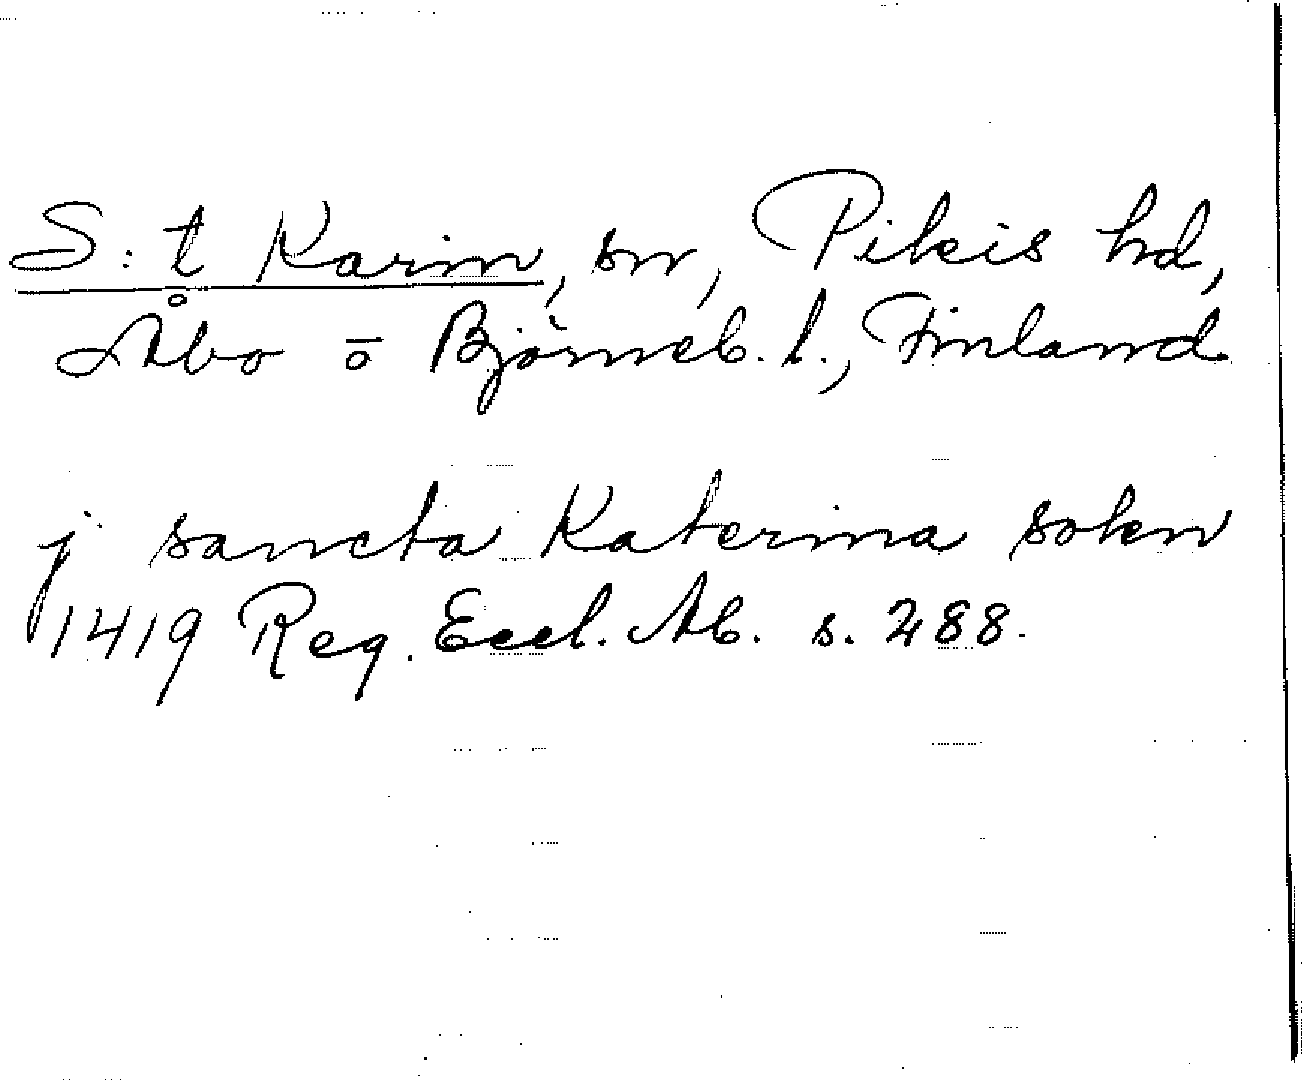 S:t Karin, sn, Pikis hd,
Åbo o Björneb. l., Finland
j sancta Katerina sokn
1419 Reg. Eccl. Ab. s. 288.